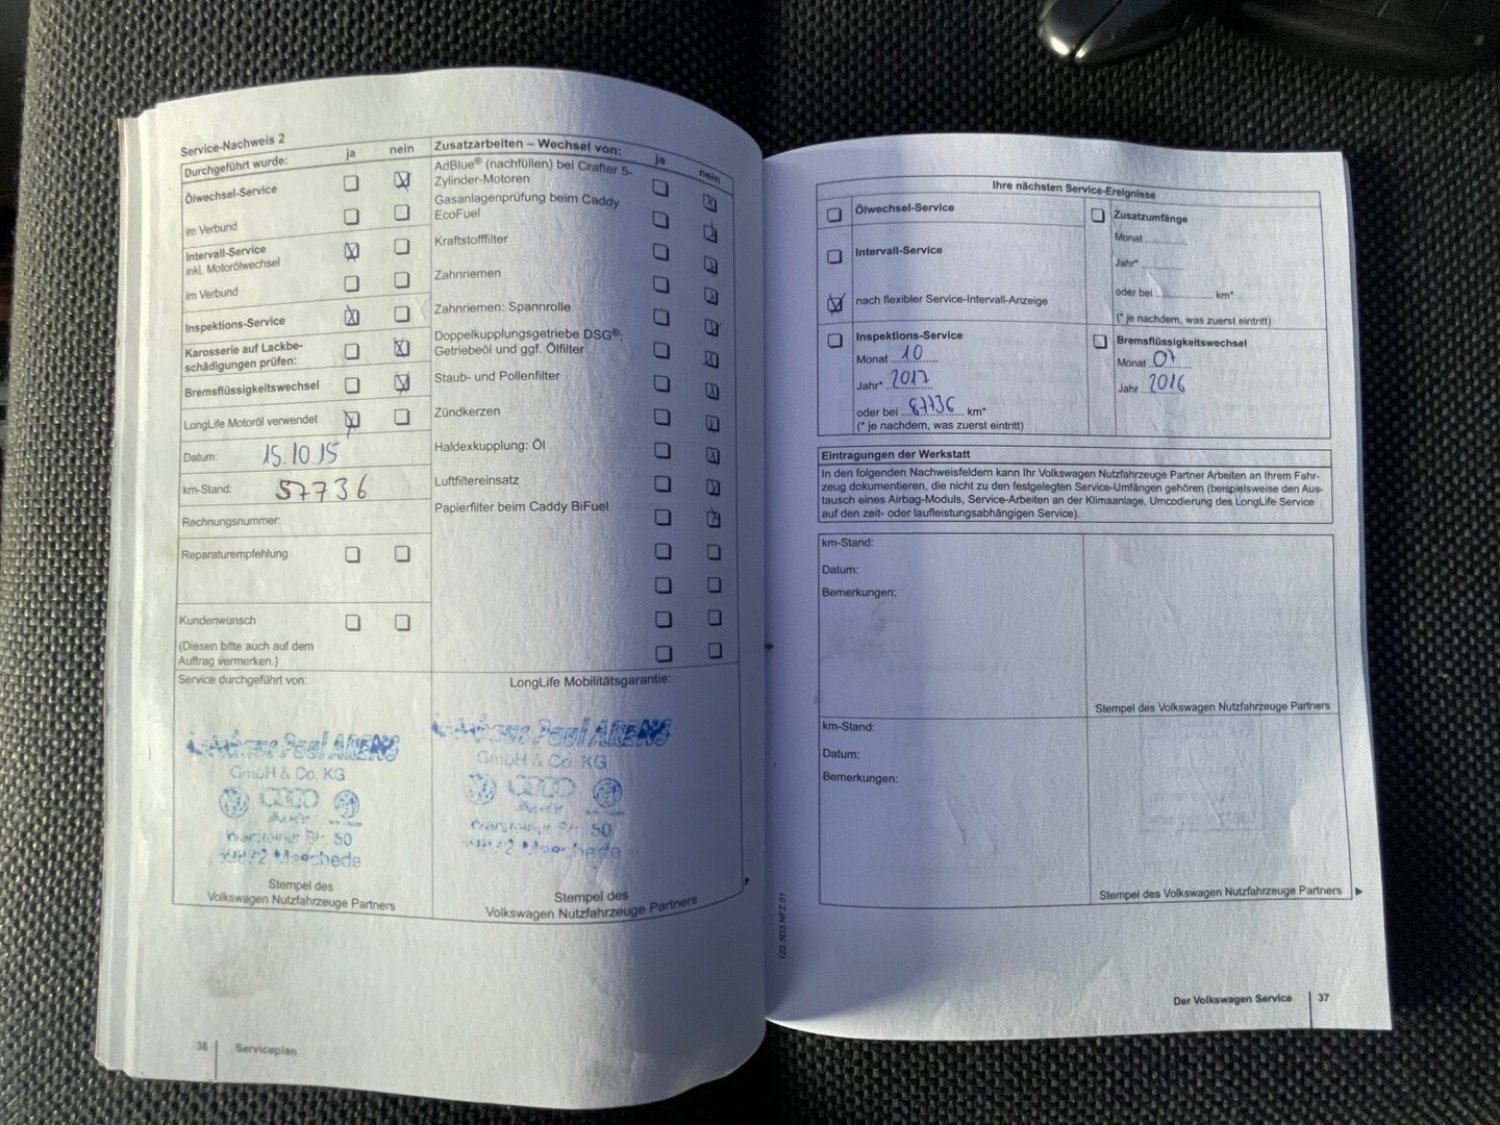 Service-Nachweis 2
Durchgeführt wurde: ja nein
Ölwechsel-Service
im Verbund
Intervall-Service
inkl. Motorölwechsel
im Verbund
Inspektions-Service
Karosserie auf Lackbe-
schädigungen prüfen:
Bremsflüssigkeitswechsel
LongLife Motoröl verwendet
Datum: 15.10.15
km-Stand: 57736
Rechnungsnummer:
Reparaturempfehlung
Kundenwunsch
(Diesen bitte auch auf dem
Auftrag vermerken.)
Zusatzarbeiten – Wechsel von: ja nein
AdBlue® (nachfüllen) bei Crafter 5-
Zylinder-Motoren
Gasanlagenprüfung beim Caddy
EcoFuel
Kraftstofffilter
Zahnriemen
Zahnriemen: Spannrolle
Doppelkupplungsgetriebe DSG®:
Getriebeöl und ggf. Ölfilter
Staub- und Pollenfilter
Zündkerzen
Haldexkupplung: Öl
Luftfiltereinsatz
Papierfilter beim Caddy BiFuel
Service durchgeführt von:
Paul ARENS
GmbH & Co. KG
Str. 50
Meschede
Stempel des
Volkswagen Nutzfahrzeuge Partners
LongLife Mobilitätsgarantie:
Paul ARENS
GmbH & Co. KG
Str. 50
Meschede
Stempel des
Volkswagen Nutzfahrzeuge Partners
36 Serviceplan
Ihre nächsten Service-Ereignisse
Ölwechsel-Service
Intervall-Service
nach flexibler Service-Intervall-Anzeige
Inspektions-Service
Monat 10
Jahr* 2017
oder bei 87736 km*
(* je nachdem, was zuerst eintritt)
Zusatzumfänge
Monat
Jahr*
oder bei km*
(* je nachdem, was zuerst eintritt)
Bremsflüssigkeitswechsel
Monat 07
Jahr 2016
Eintragungen der Werkstatt
In den folgenden Nachweisfeldern kann Ihr Volkswagen Nutzfahrzeuge Partner Arbeiten an Ihrem Fahr-
zeug dokumentieren, die nicht zu den festgelegten Service-Umfängen gehören (beispielsweise den Aus-
tausch eines Airbag-Moduls, Service-Arbeiten an der Klimaanlage, Umcodierung des LongLife Service
auf den zeit- oder laufleistungsabhängigen Service).
km-Stand:
Datum:
Bemerkungen:
Stempel des Volkswagen Nutzfahrzeuge Partners
km-Stand:
Datum:
Bemerkungen:
Stempel des Volkswagen Nutzfahrzeuge Partners
Der Volkswagen Service 37